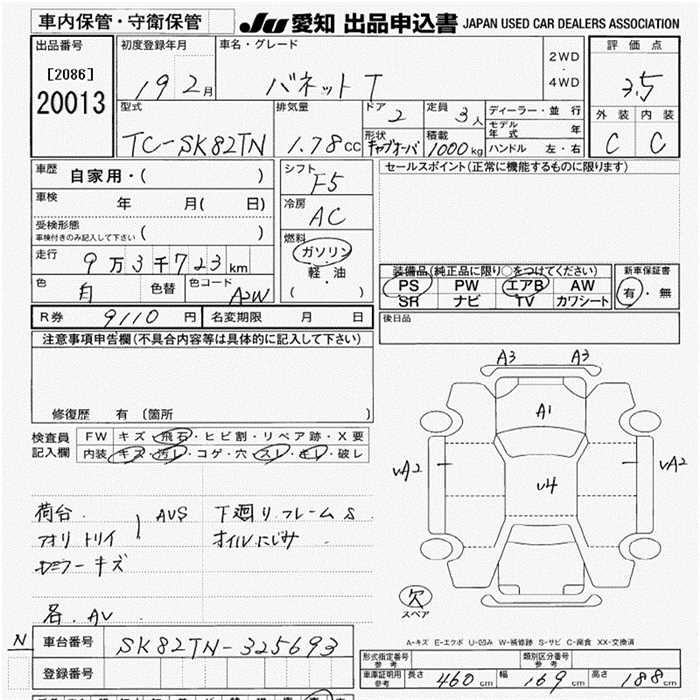 車内保管・守衛保管 JU 愛知 出品申込書 JAPAN USED CAR DEALERS ASSOCIATION
出品番号 初度登録年月 車名・グレード 2WD・4WD 評価点
[2086] 19 2月 バネットT 3.5
20013
型式 排気量 ドア 2 定員 3人 ディーラー・並行 外装 内装
TC-SK82TN 1.78CC モデル年式 年 C C
形状 キャブオーバ 積載 1000kg ハンドル 左・右
車歴 自家用・( ) シフト F5 セールスポイント(正常に機能するものに限ります)
車検 年 月( 日) 冷房 AC
受検形態 ( )
車検付きのみ記入して下さい
燃料 ガソリン
走行 9万3千723km 軽・油
( )
装備品(純正品に限り○をつけてください) 新車保証書
色 白 色替 色コード A2W PS PW エアB AW 有・無
SR ナビ TV カワシート
R券 9110円 名変期限 月 日 後日品
注意事項申告欄(不具合内容等は具体的に記入して下さい)
修復歴 有 (箇所 )
A3 A3
A1
VA2 VA2
U4
検査員記入欄 FW キズ・飛石・ヒビ割・リペア跡・X要
内装 キズ・汚レ・コゲ・穴・スレ・キレ・破レ
荷台. AUS 下廻りフレームS
アオリ トリイ オイルにじみ
ミラーキズ
各. AV
欠
スペア
N 車台番号 SK82TN-325693
登録番号
A-キズ E-エクボ U-凹み W-補修跡 S-サビ C-腐食 XX-交換済
形式指定番号 参考 類別区分番号 参考
車庫証明用参考 長さ 460cm 幅 169cm 高さ 188cm